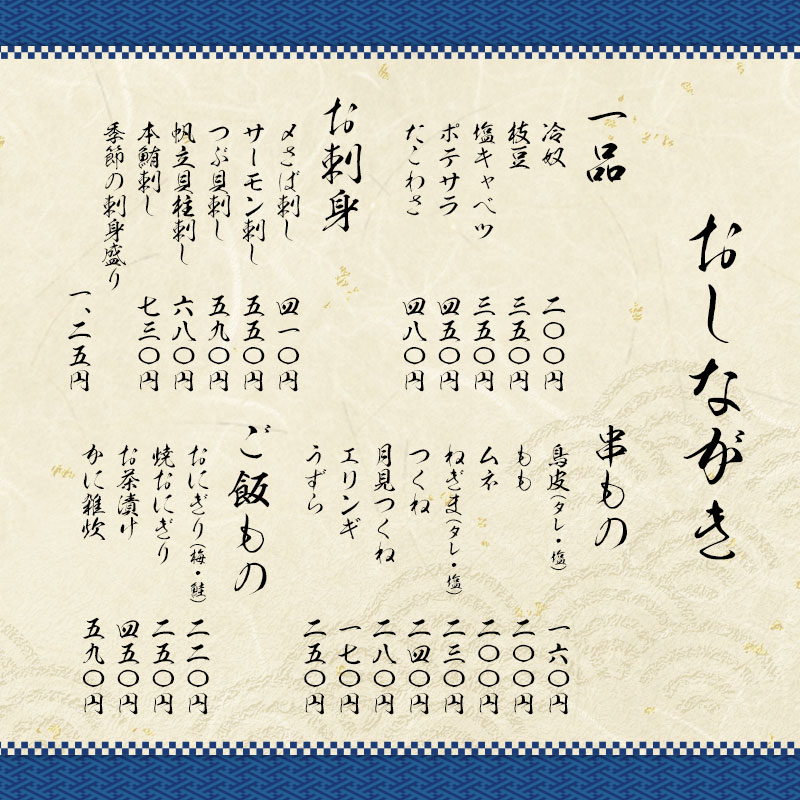 おしながき
一品
冷奴 二〇〇円
枝豆 三五〇円
塩キャベツ 三五〇円
ポテサラ 四五〇円
たこわさ 四八〇円
お刺身
〆さば刺し 四一〇円
サーモン刺し 五五〇円
つぶ貝刺し 五九〇円
帆立貝柱刺し 六八〇円
本鮪刺し 七三〇円
季節の刺身盛り 一、二五円
串もの
鳥皮(タレ・塩) 一六〇円
もも 二〇〇円
ムネ 二〇〇円
ねぎま(タレ・塩) 二三〇円
つくね 二四〇円
月見つくね 二八〇円
エリンギ 一七〇円
うずら 二五〇円
ご飯もの
おにぎり(梅・鮭) 二二〇円
焼おにぎり 二五〇円
お茶漬け 四五〇円
かに雑炊 五九〇円